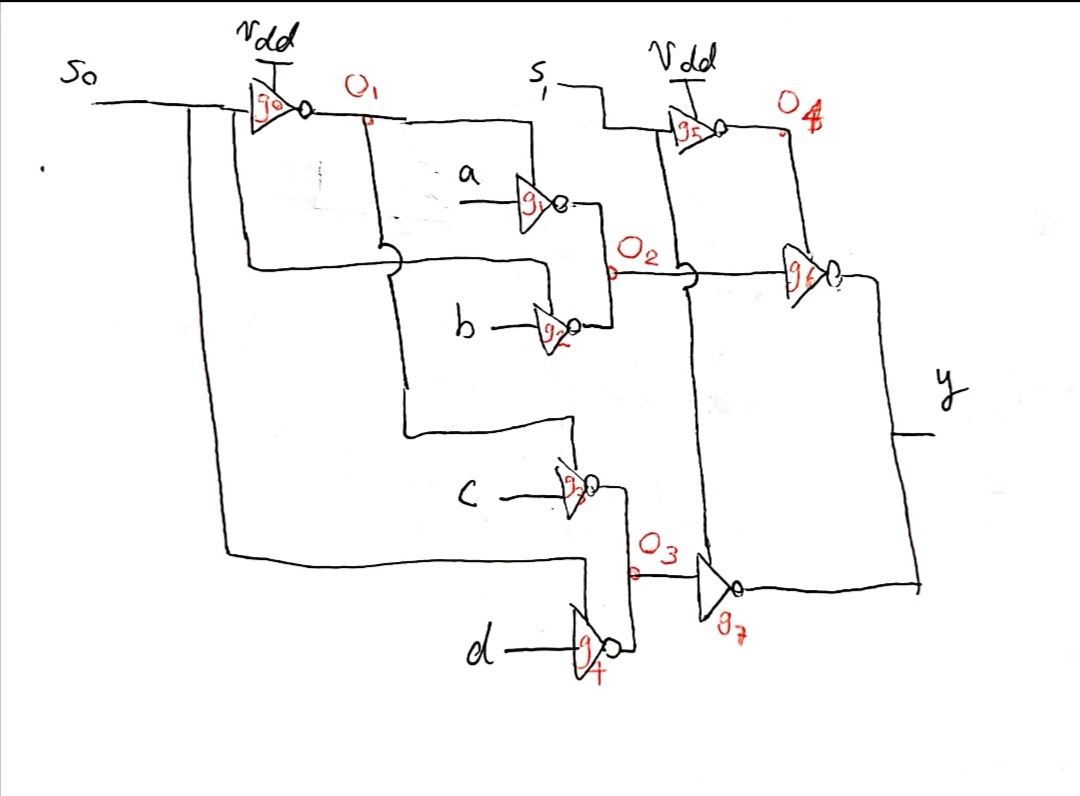 Vdd
S0
g0
O1
S1
Vdd
g5
O4
a
g1
O2
g6
b
g2
y
c
g3
O3
d
g4
g7